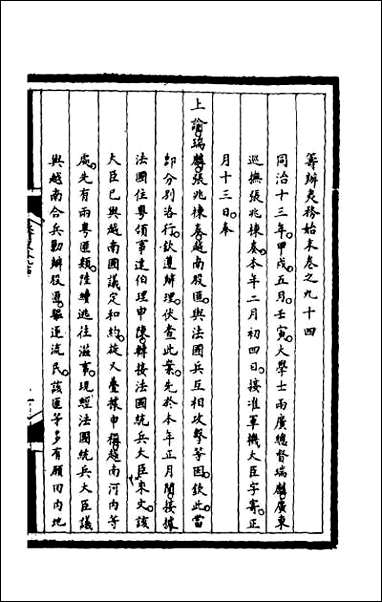 籌辦夷務始末卷之九十四
同治十三年甲戌五月壬寅大學士兩廣總督瑞麟廣東
巡撫張兆棟奏本年二月初四日接准軍機大臣字寄正
月十三日奉
上諭瑞麟張兆棟奏越南股匪與法國兵互相攻擊等因欽此當
即分別咨行欽遵辦理伏查此案先於本年正月間接據
法國住粵領事達伯理申陳轉接法國統兵大臣來文該
大臣已與越南國議定和約旋又疊據申稱越南河內等
處先有兩粵匪類陸續逃往滋事現經法國統兵大臣議
與越南合兵勦辦殺遵驅逐流民該匪等多有願回內地